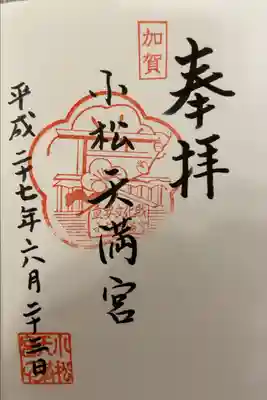 奉拝
加賀
小松天満宮
平成二十七年六月二十三日